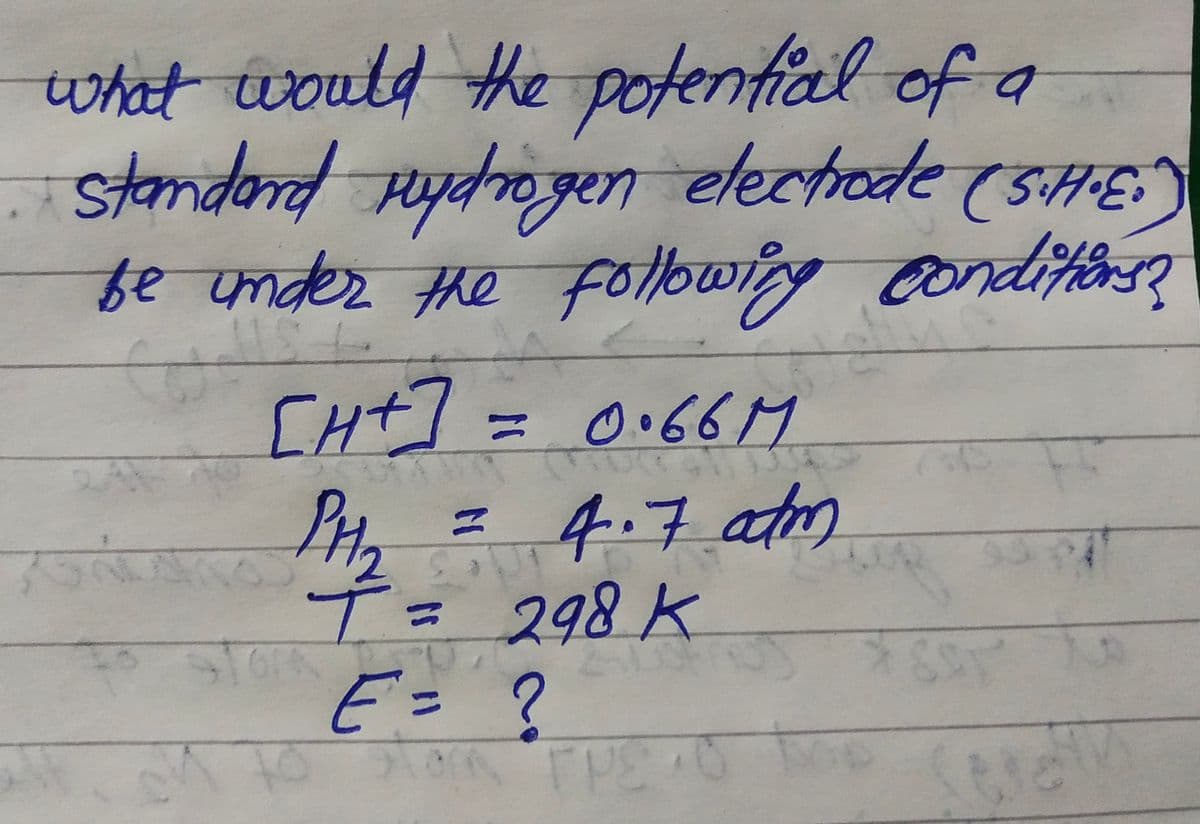 what would the potential of a
standard Hydrogen electrode (S.H.E.)
be under the following conditions?
[H+] = 0.66 M
PH₂ = 4.7 atm
T = 298 K
E = ?